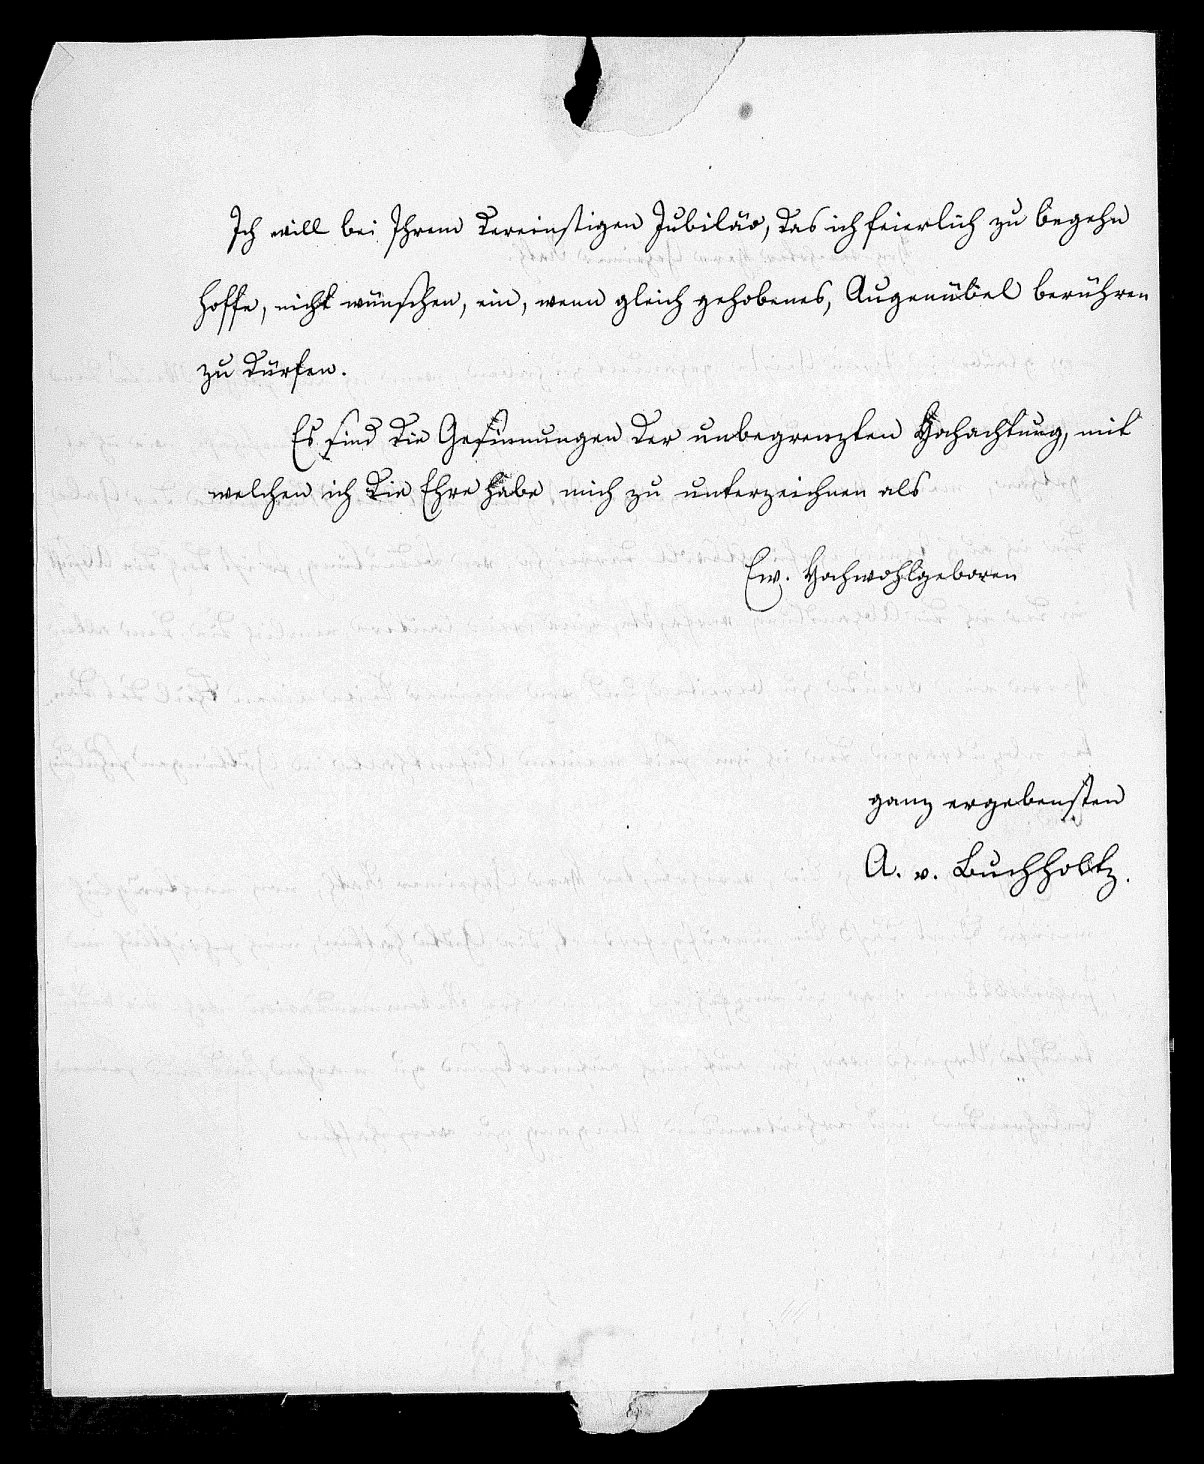 Ich will bei Ihrem dereinstigen Jubiläo, das ich feierlich zu begehn
hoffe, nicht wünschen, ein, wenn gleich gehobenes, Augenübel berühren
zu dürfen.
Es sind die Gesinnungen der unbegrenzten Hochachtung, mit
welchen ich die Ehre habe mich zu unterzeichnen als
Ew. Hochwohlgeboren
ganz ergebensten
A. v. Buchholtz.